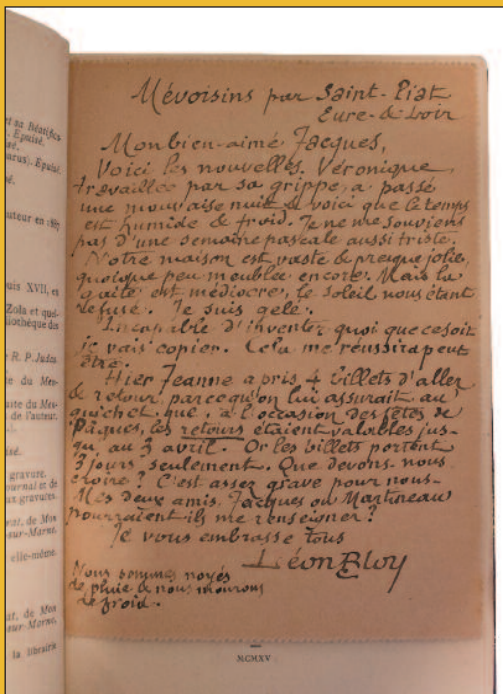 Mévoisins par Saint-Piat
Eure-&-Loir
Mon bien-aimé Jacques,
Voici les nouvelles. Véronique,
travaillée par sa grippe, a passé
une mauvaise nuit & voici que le temps
est humide & froid. Je ne me souviens
pas d'une semaine pascale aussi triste.
Notre maison est vaste & presque jolie,
quoique peu meublée encore. Mais la
gaîté est médiocre, le soleil nous étant
refusé. Je suis gelé.
Incapable d'inventer quoi que ce soit
je vais copier. Cela me réussira peut
être.
Hier Jeanne a pris 4 billets d'aller
& retour parce qu'on lui assurait au
guichet que, à l'occasion des fêtes de
Pâques, les retours étaient valables jus-
qu'au 3 avril. Or les billets portent
3 jours seulement. Que devons-nous
croire ? C'est assez grave pour nous.
Mes deux amis Jacques ou Martineau
pourraient-ils me renseigner ?
Je vous embrasse tous
Léon Bloy
Nous sommes noyés
de pluie & nous mourons
de froid.
MCMXV
et sa Béatifi-
Epuisé.
Epuisé.
auteur en 1887
Louis XVII, et
Zola et quel-
bliothèque des
R. P. Judas
du Mer-
du Mer-
de l'auteur.
gravure.
journal et de
gravures.
de Mon
-sur-Marne.
elle-même.
de Mon
-sur-Marne.
la librairie